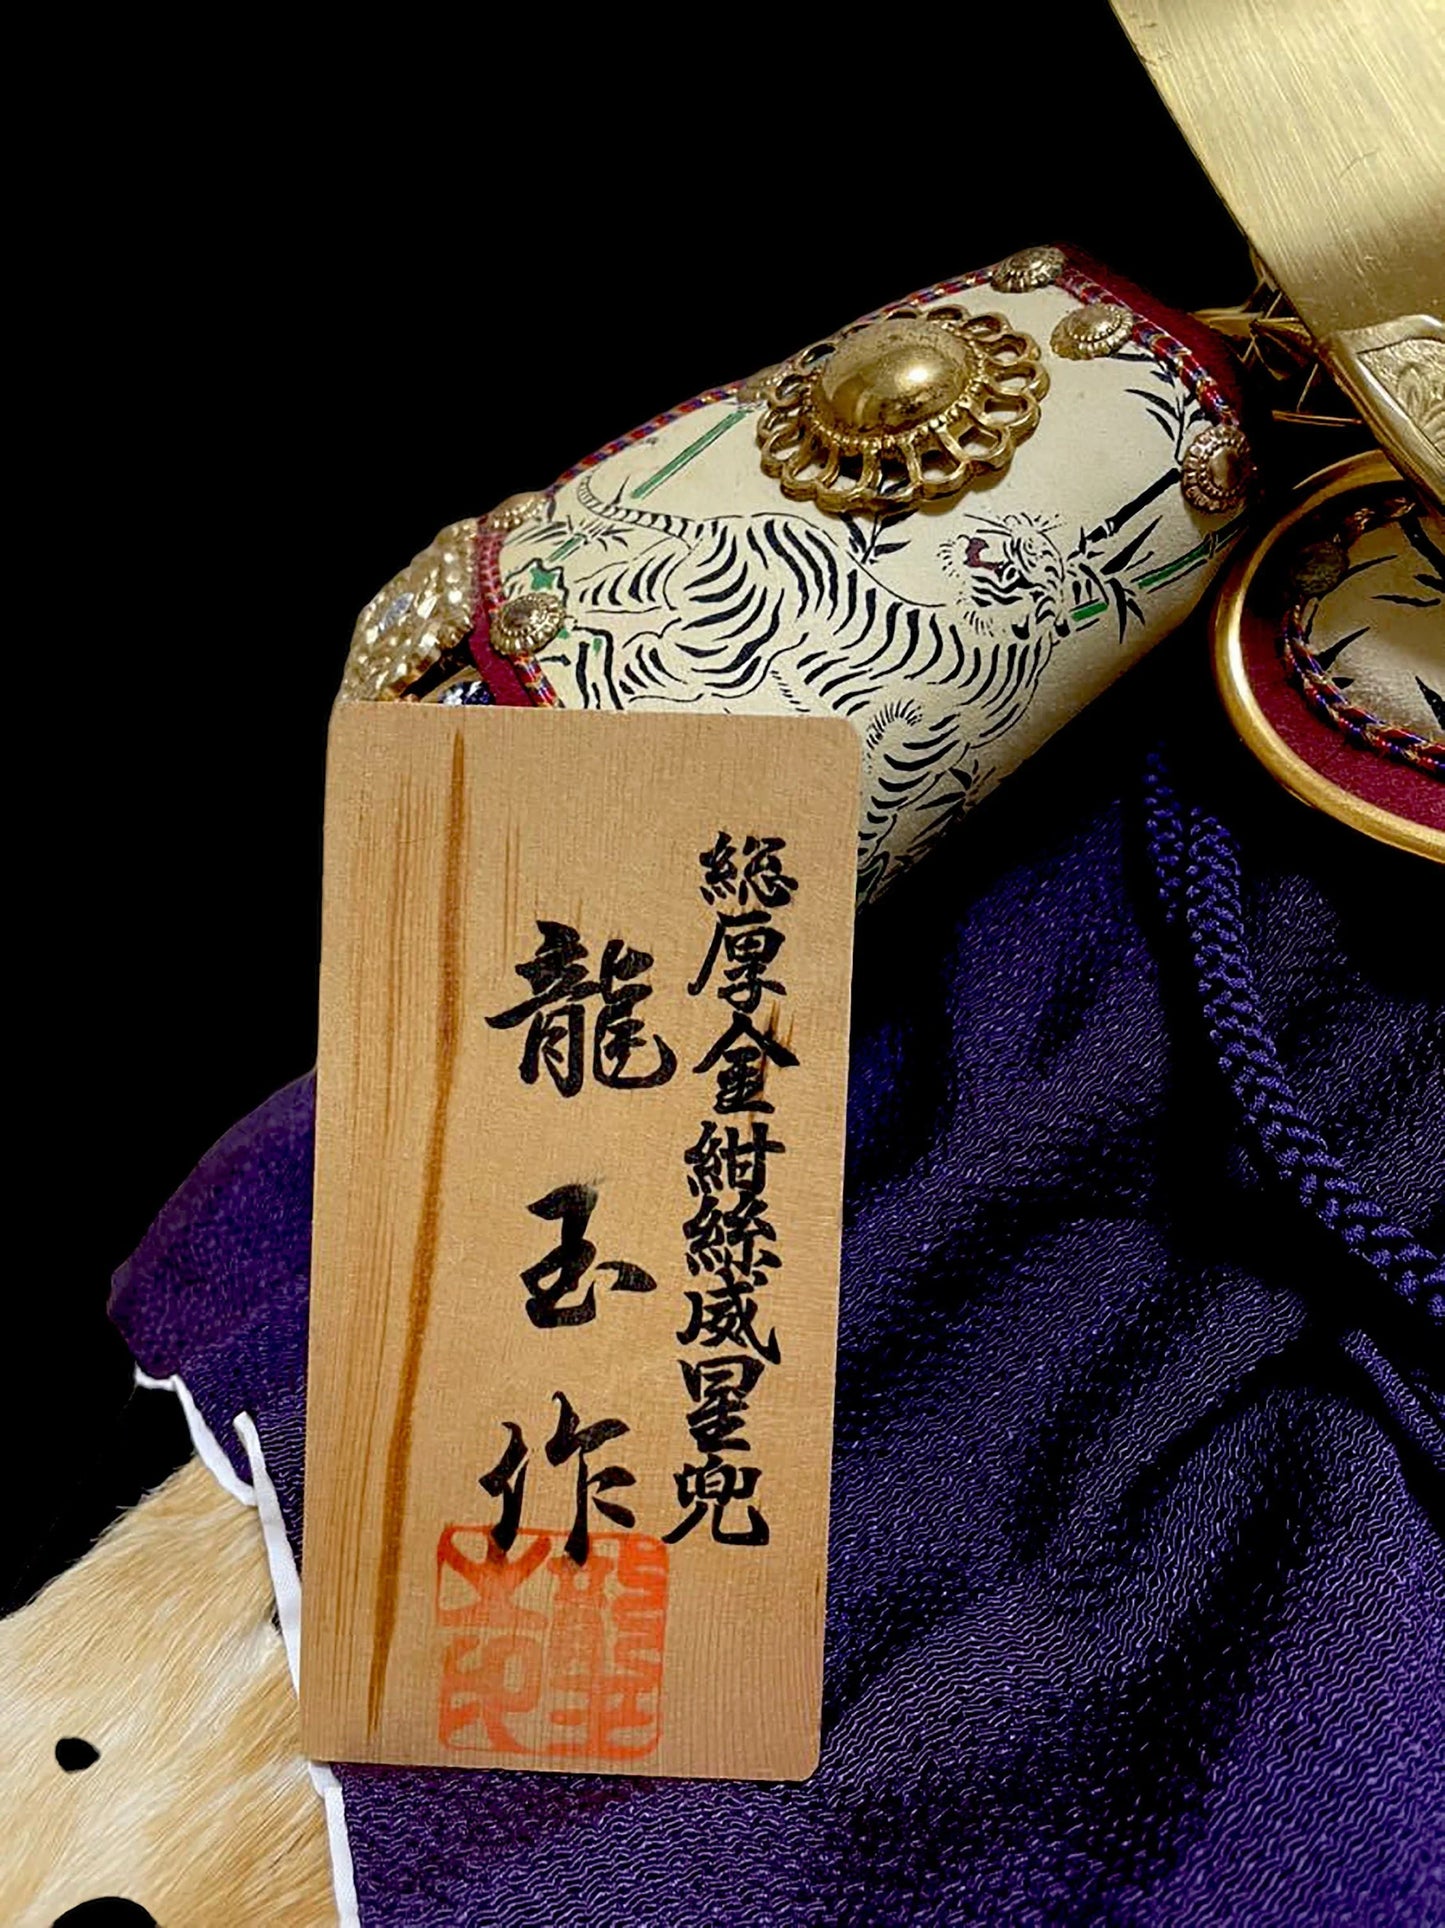 総厚金紺絲威星兜
龍玉作